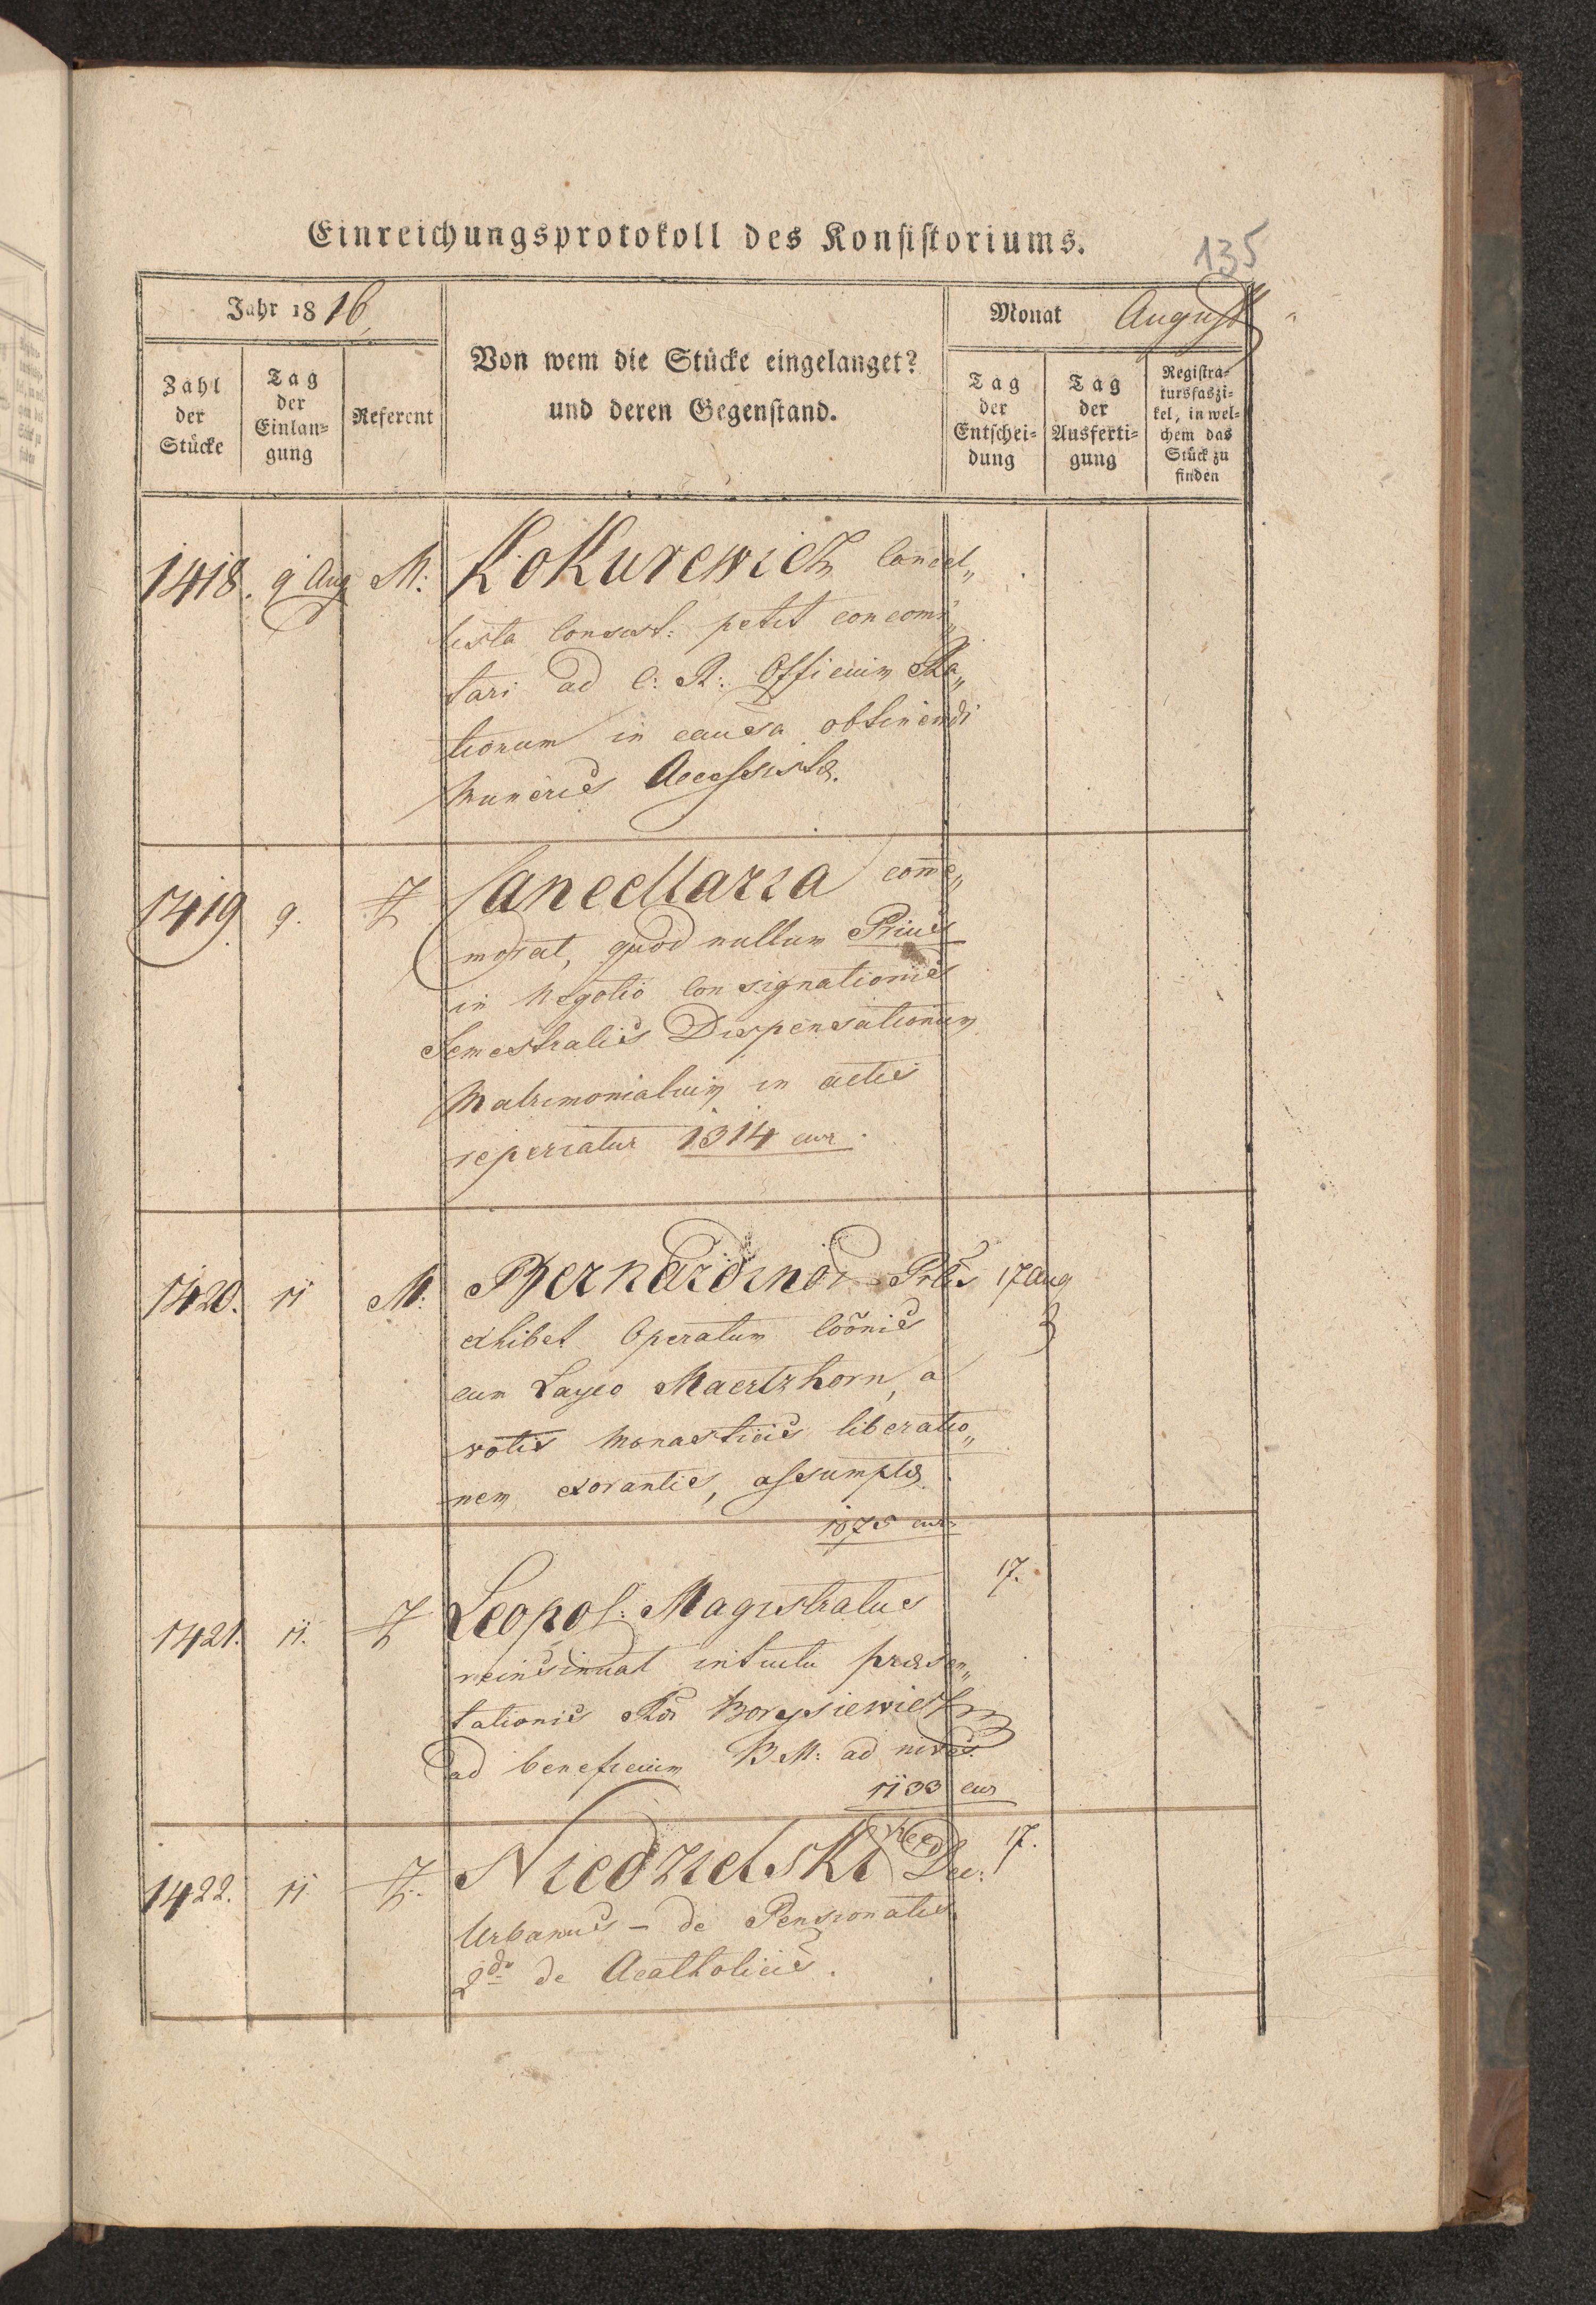 Einreichungsprotokoll des Konsistoriums.
135
Jahr 1816
Monat August
Zahl der Stücke
Tag der Einlangung
Referent
Von wem die Stücke eingelanget?
und deren Gegenstand.
Tag der Entscheidung
Tag der Ausfertigung
Registratursfaszikel, in welchem das Stück zu finden
1418. 9 Aug M: Kokurewicz Cancel„
lista Consist: petit concomi„
tari ad C: R: Officium Ra„
tionum in causa obtinendi
muneris Accessistæ.
1419 9. Cancellaria com̄e„
morat, quod nullum Prius
in negotio Consignationis
Semestralis Dispensationum
Matrimonialium in actis
reperiatur 1314 curr.
1420. 11 M: Bernardinor Prlis 17 Aug
exhibet Operatum Cõonis
cum Layco Maertzhorn, a
votis monasticis liberatio„
nem exorantis, assumptæ.
1075 curr
1421. 11. Leopol: Magistratus 17.
reinsinuat intuitu præsen„
tationis Rdi Borysiewicz
ad beneficium B.M: ad nives.
1133 curr
1422. 11 Niedzielski Vice Dec: 17.
Urbanus – de Pensionatis.
2do de Acatholicis.